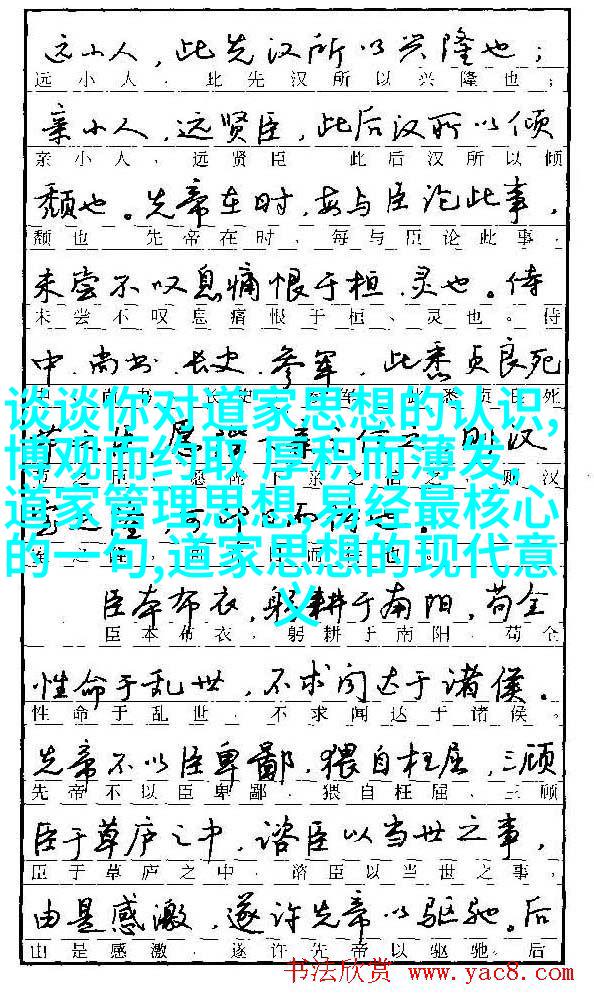 远小人，此先汉所以兴隆也；
远小人，此先汉所以兴隆也；
亲小人，远贤臣，此后汉所以倾
亲小人，远贤臣 此后汉所以倾
颓也。先帝在时，每与臣论此事，
颓也 先帝在时，每与臣论此事，
未尝不叹息痛恨于桓、灵也。侍
未尝不叹息痛恨于桓、灵也。侍
中、尚书、长史、参军，此悉贞良死
谈谈你对道家思想的认识,
博观而约取 厚积而薄发,
道家管理思想,易经最核心
的一句,道家思想的现代意
义
则汉
则汉
臣本布衣，躬耕于南阳，苟全
臣本布衣，躬耕于南阳，苟全
性命于乱世，不求闻达于诸侯。
性命于乱世，不求闻达于诸侯。
先帝不以臣卑鄙，猥自枉屈，三顾
先帝不以臣卑鄙，猥自枉屈、三顾
臣于草庐之中，谘臣以当世之事，
臣于草庐之中，谘臣以当世之事，
由是感激，遂许先帝以驱驰。后
由是感激，遂许先帝以驱驰。后
书法欣赏 www.yac8.com